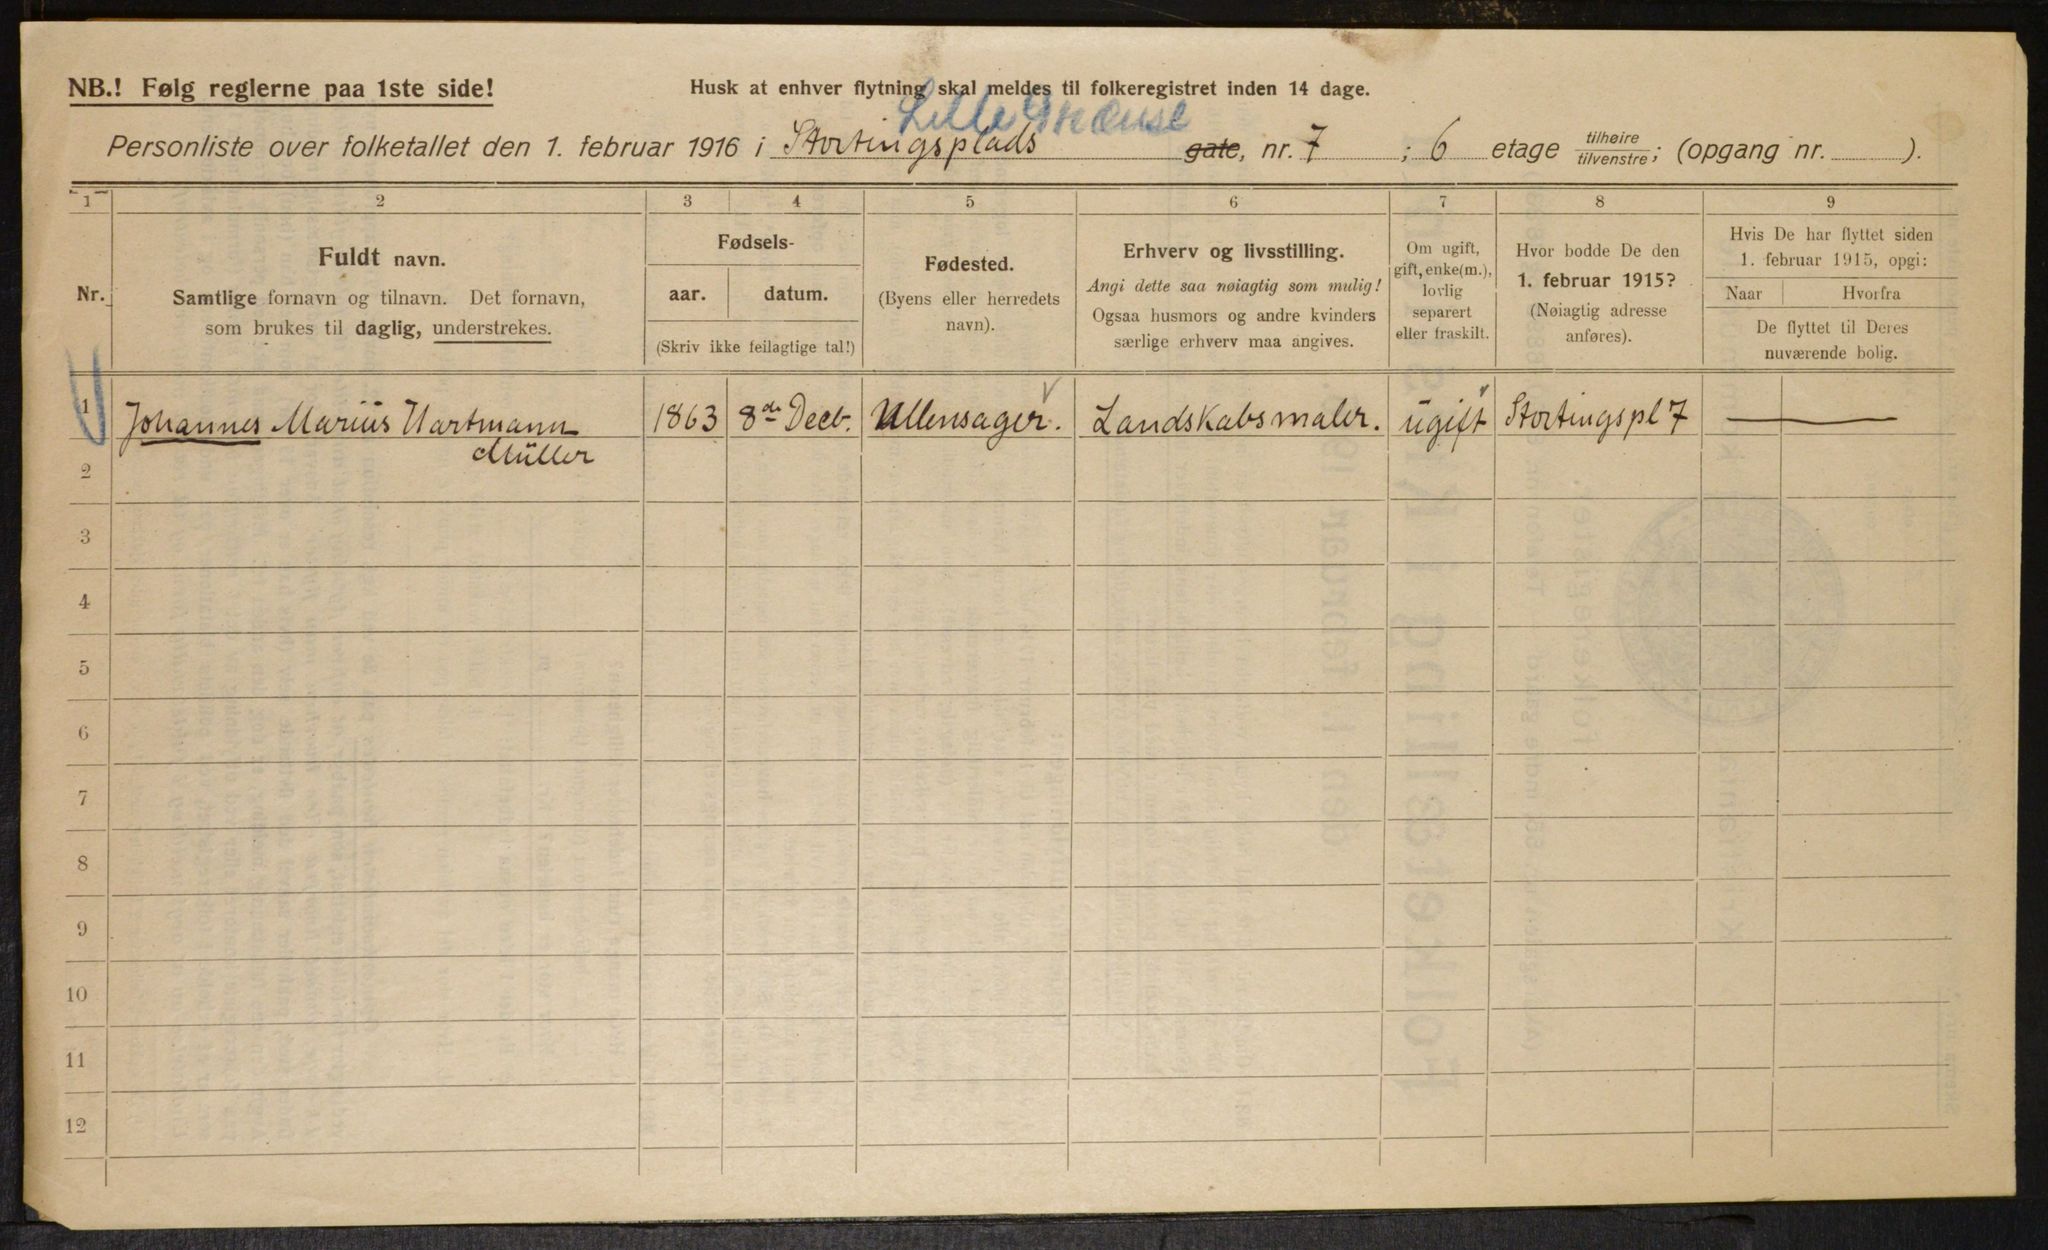 NB.! Følg reglerne paa 1ste side!
Husk at enhver flytning skal meldes til folkeregistret inden 14 dage.
Lille Grænse
Personliste over folketallet den 1. februar 1916 i Stortingsplads gate, nr. 7 ; 6 etage tilhøire/tilvenstre; (opgang nr. ).
1 2 3 4 5 6 7 8 9
Nr.
Fuldt navn.
Samtlige fornavn og tilnavn. Det fornavn,
som brukes til daglig, understrekes.
Fødsels-
aar. datum.
(Skriv ikke feilagtige tal!)
Fødested.
(Byens eller herredets
navn).
Erhverv og livsstilling.
Angi dette saa nøiagtig som mulig!
Ogsaa husmors og andre kvinders
særlige erhverv maa angives.
Om ugift,
gift, enke(m.),
lovlig
separert
eller fraskilt.
Hvor bodde De den
1. februar 1915?
(Nøiagtig adresse
anføres).
Hvis De har flyttet siden
1. februar 1915, opgi:
Naar Hvorfra
De flyttet til Deres
nuværende bolig.
1 Johannes Marius Hartmann 1863 8de Decb. Ullensager. Landskabsmaler. ugift Stortingspl 7
Müller
2
3
4
5
6
7
8
9
10
11
12